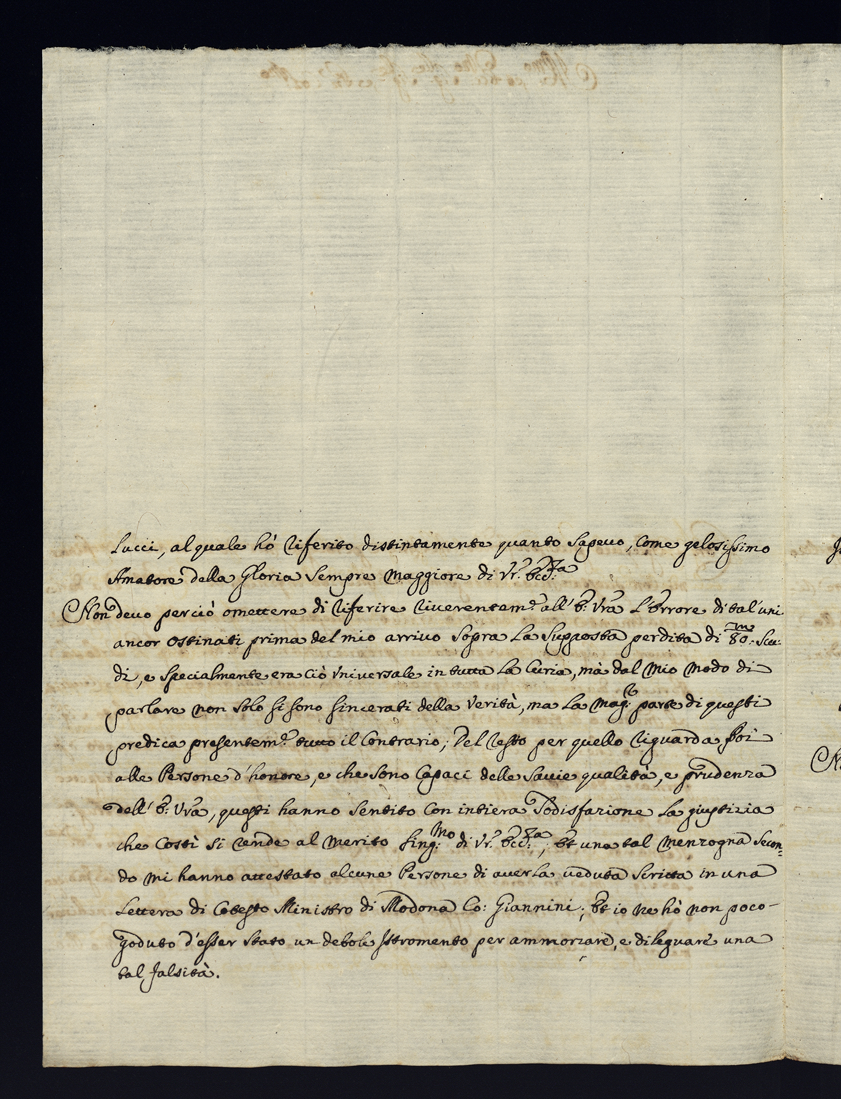 Lucci, al quale hò riferito distintamente quanto sapevo, come gelosissimo
Amatore della Gloria sempre maggiore di Vr. Ecc.za
Non devo perciò omettere di riferire riverentem.e all'E. Vra L'Errore di tal'uni
ancor ostinati prima del mio arrivo sopra La supposta perdita di 80.m Scu:
di, e specialmente era ciò universale in tutta La Curia, mà dal mio modo di
parlare non solo si sono sincerati della Verità, ma La mag.r parte di questi
predica presentem.e tutto il Contrario; Del resto per quello riguarda poi
alle Persone d'honore, e che sono Capaci delle Savie qualità, e prudenza
dell'E. Vra, questi hanno sentito con intiera sodisfazione La giustizia
che Costì si rende al merito sing.mo di Vr. Ecc.za, Et una tal menzogna secon=
do mi hanno attestato alcune Persone di averLa veduta scritta in una
Lettera di Cotesto Ministro di Modona Co: Giannini; Et io ne hò non poco
goduto d'esser stato un debole Istromento per ammorzare, e dileguare una
tal falsità.